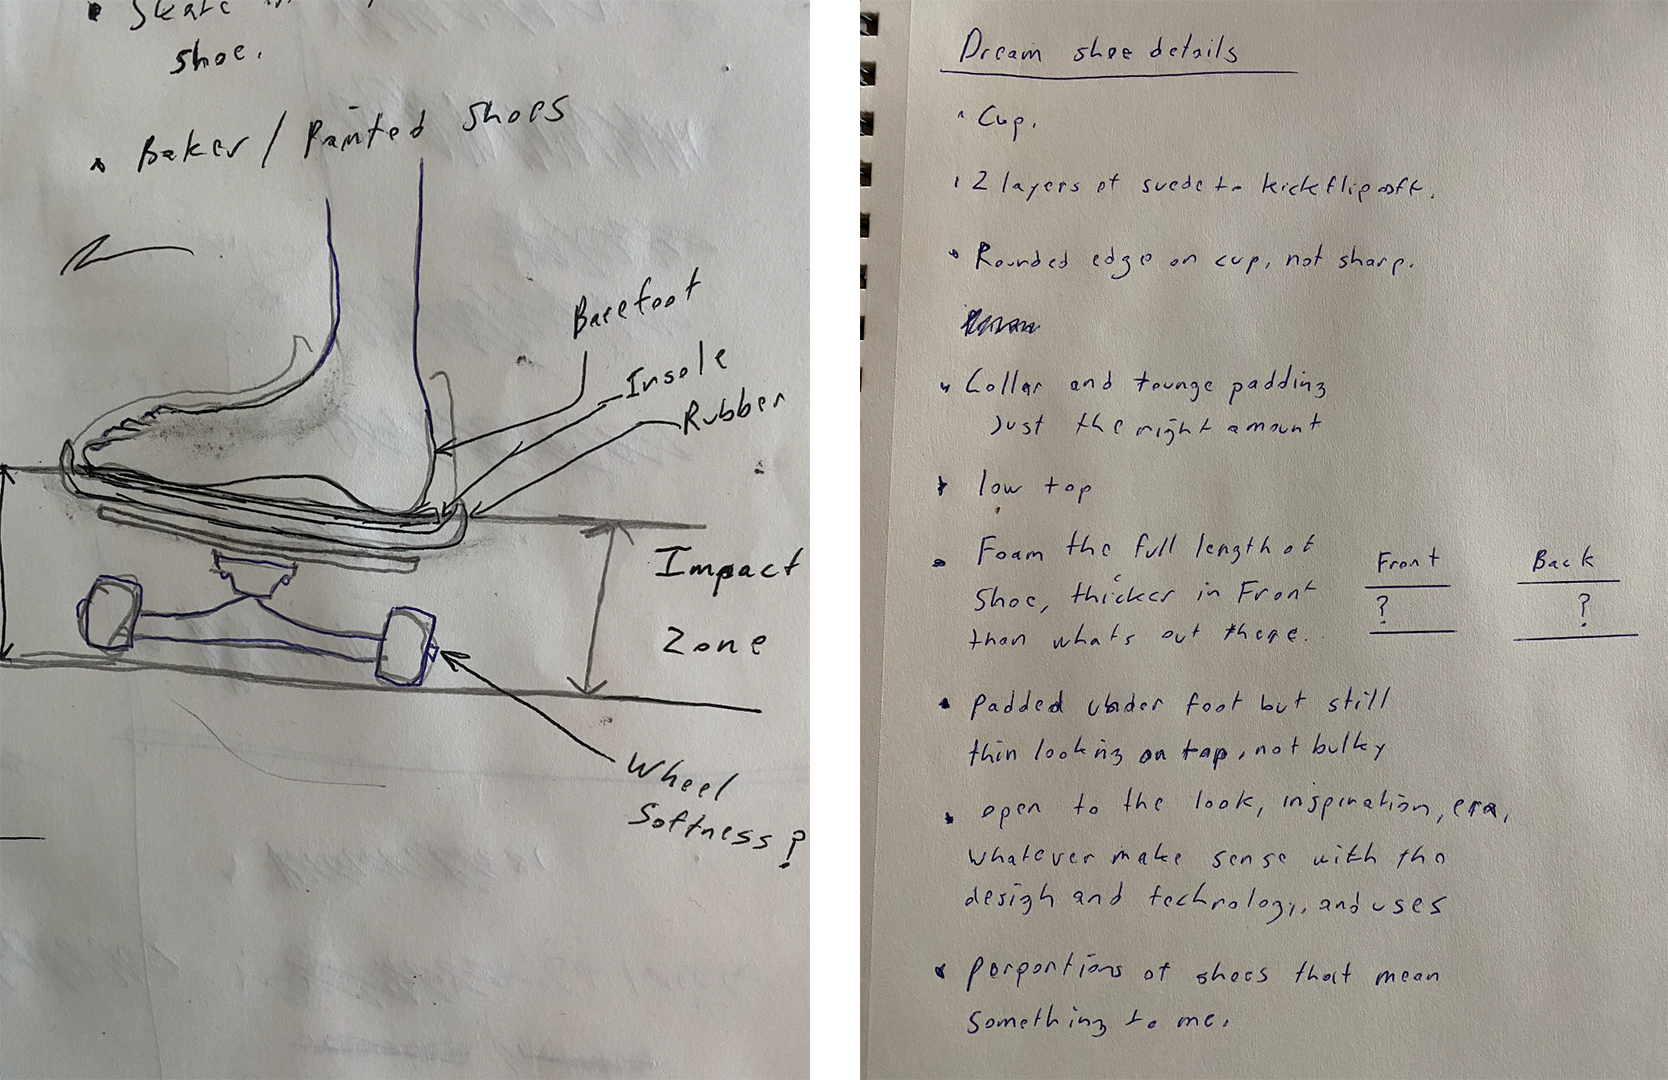 • Skate
shoe.
• Baker / Painted Shoes
Barefoot
Insole
Rubber
Impact
Zone
Wheel
Softness?
Dream shoe details
• Cup.
• 2 layers of suede to kickflip
• Rounded edge on cup, not sharp.
• Collar and tounge padding
Just the right amount
• low top
• Foam the full length of
shoe, thicker in Front
than whats out there.
Front
?
Back
?
• padded under foot but still
thin looking on top, not bulky
• open to the look, inspiration, era,
whatever make sense with the
design and technology, and uses
• porportions of shoes that mean
something to me.